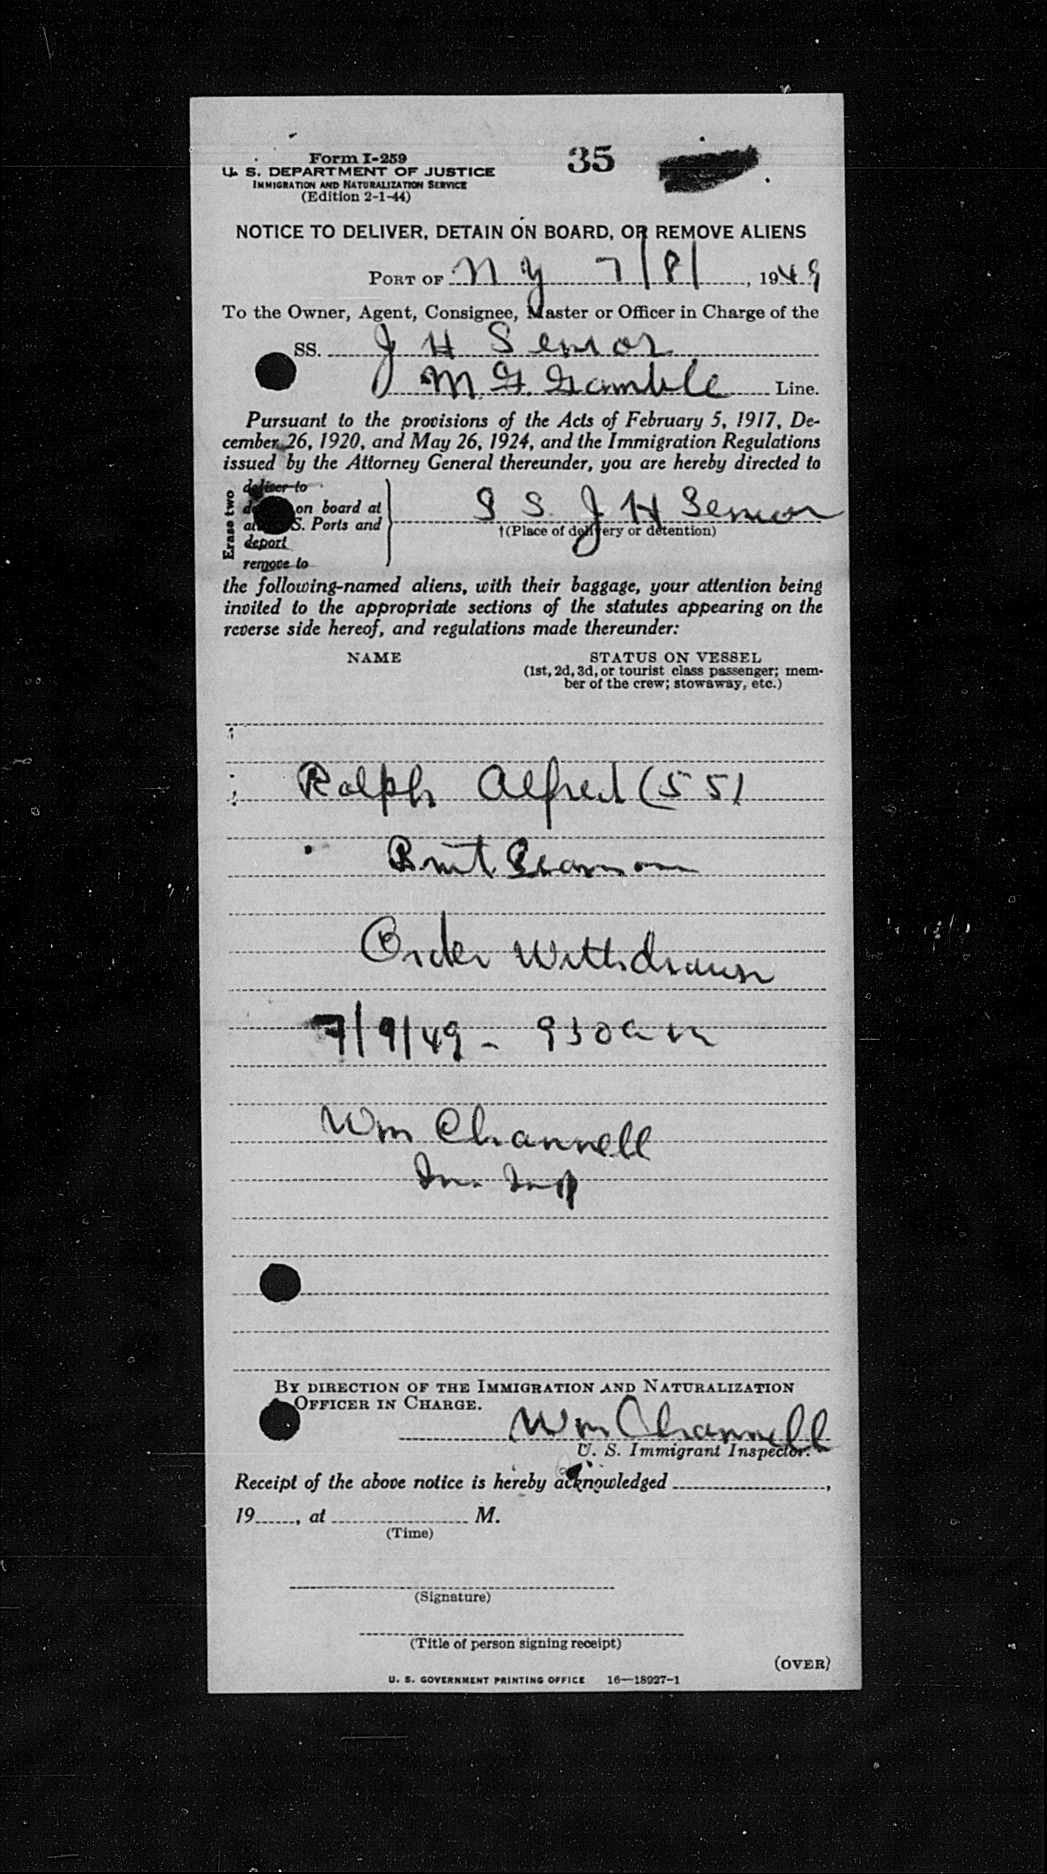 Form I-259
U. S. DEPARTMENT OF JUSTICE
IMMIGRATION AND NATURALIZATION SERVICE
(Edition 2-1-44)
35
NOTICE TO DELIVER, DETAIN ON BOARD, OR REMOVE ALIENS
PORT OF N Y 7/8/, 1949
To the Owner, Agent, Consignee, Master or Officer in Charge of the
SS. J H Senior
M. G. Gamble Line.
Pursuant to the provisions of the Acts of February 5, 1917, De-
cember 26, 1920, and May 26, 1924, and the Immigration Regulations
issued by the Attorney General thereunder, you are hereby directed to
Erase two
deliver to
on board at
S. Ports and
deport
remove to
S S J H Senior
†(Place of delivery or detention)
the following-named aliens, with their baggage, your attention being
invited to the appropriate sections of the statutes appearing on the
reverse side hereof, and regulations made thereunder:
NAME STATUS ON VESSEL
(1st, 2d, 3d, or tourist class passenger; mem-
ber of the crew; stowaway, etc.)
Ralph Alfred (55)
Brit Seaman
Order Withdrawn
7/9/49 - 930 am
Wm Channell
Im. Insp
BY DIRECTION OF THE IMMIGRATION AND NATURALIZATION
OFFICER IN CHARGE.
Wm Channell
U. S. Immigrant Inspector.
Receipt of the above notice is hereby acknowledged ,
19 , at M.
(Time)
(Signature)
(Title of person signing receipt)
(OVER)
U. S. GOVERNMENT PRINTING OFFICE 16—18927-1